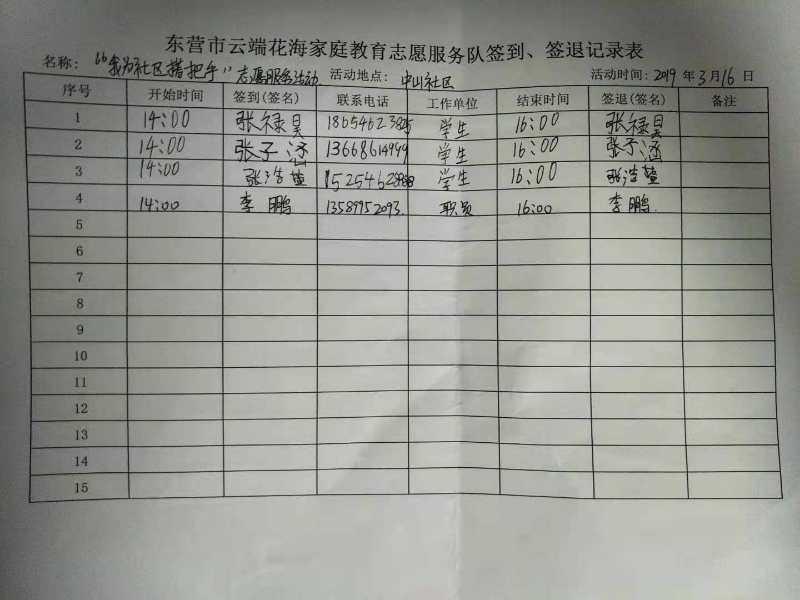 东营市云端花海家庭教育志愿服务队签到、签退记录表
名称：“我为社区搭把手”志愿服务活动 活动地点：中山社区 活动时间：2019年3月16日
序号 开始时间 签到(签名) 联系电话 工作单位 结束时间 签退(签名) 备注
1 14:00 张禄昊 学生 16:00 张禄昊
2 14:00 张子涵 13668614999 学生 16:00 张子涵
3 14:00 张浩 学生 16:00 张浩
4 14:00 李鹏 13589952093 职员 16:00 李鹏
5
6
7
8
9
10
11
12
13
14
15